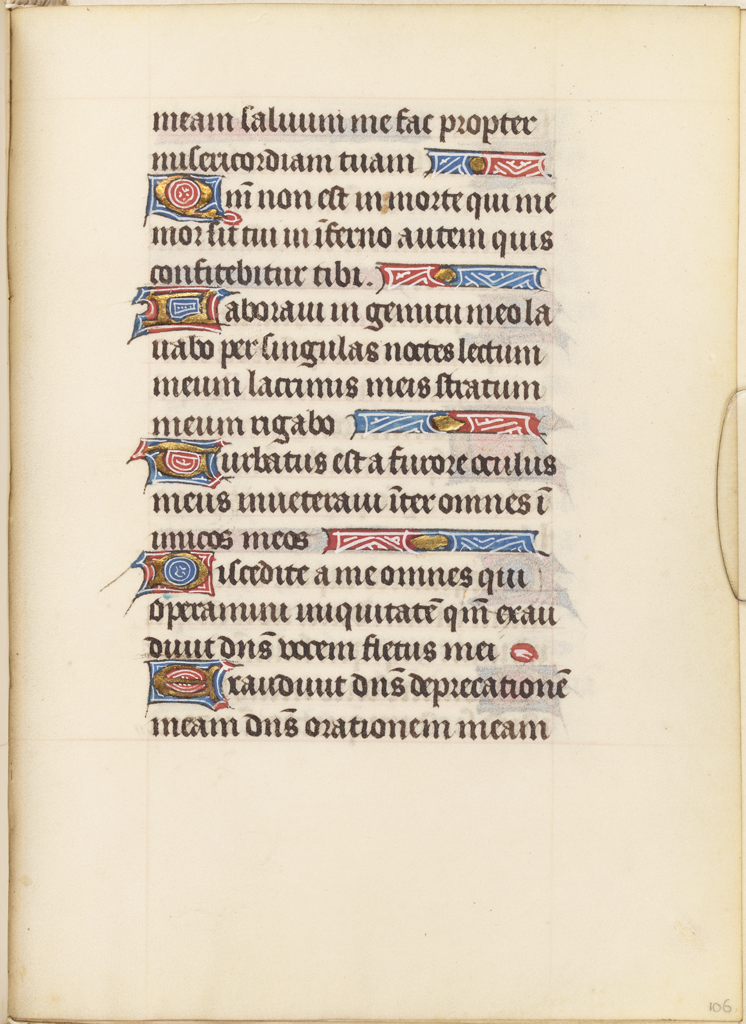 meam saluum me fac propter
misericordiam tuam
Qm̄ non est in morte qui me
mor sit tui in īferno autem quis
confitebitur tibi.
Laboraui in gemitu meo la
uabo per singulas noctes lectum
meum lacrimis meis stratum
meum rigabo
Turbatus est a furore oculus
meus inueteraui īter omnes ī
imicos meos
Discedite a me omnes qui
operamini iniquitatē qm̄ exau
diuit dn̄s vocem fletus mei
Exaudiuit dn̄s deprecationē
meam dn̄s orationem meam
106